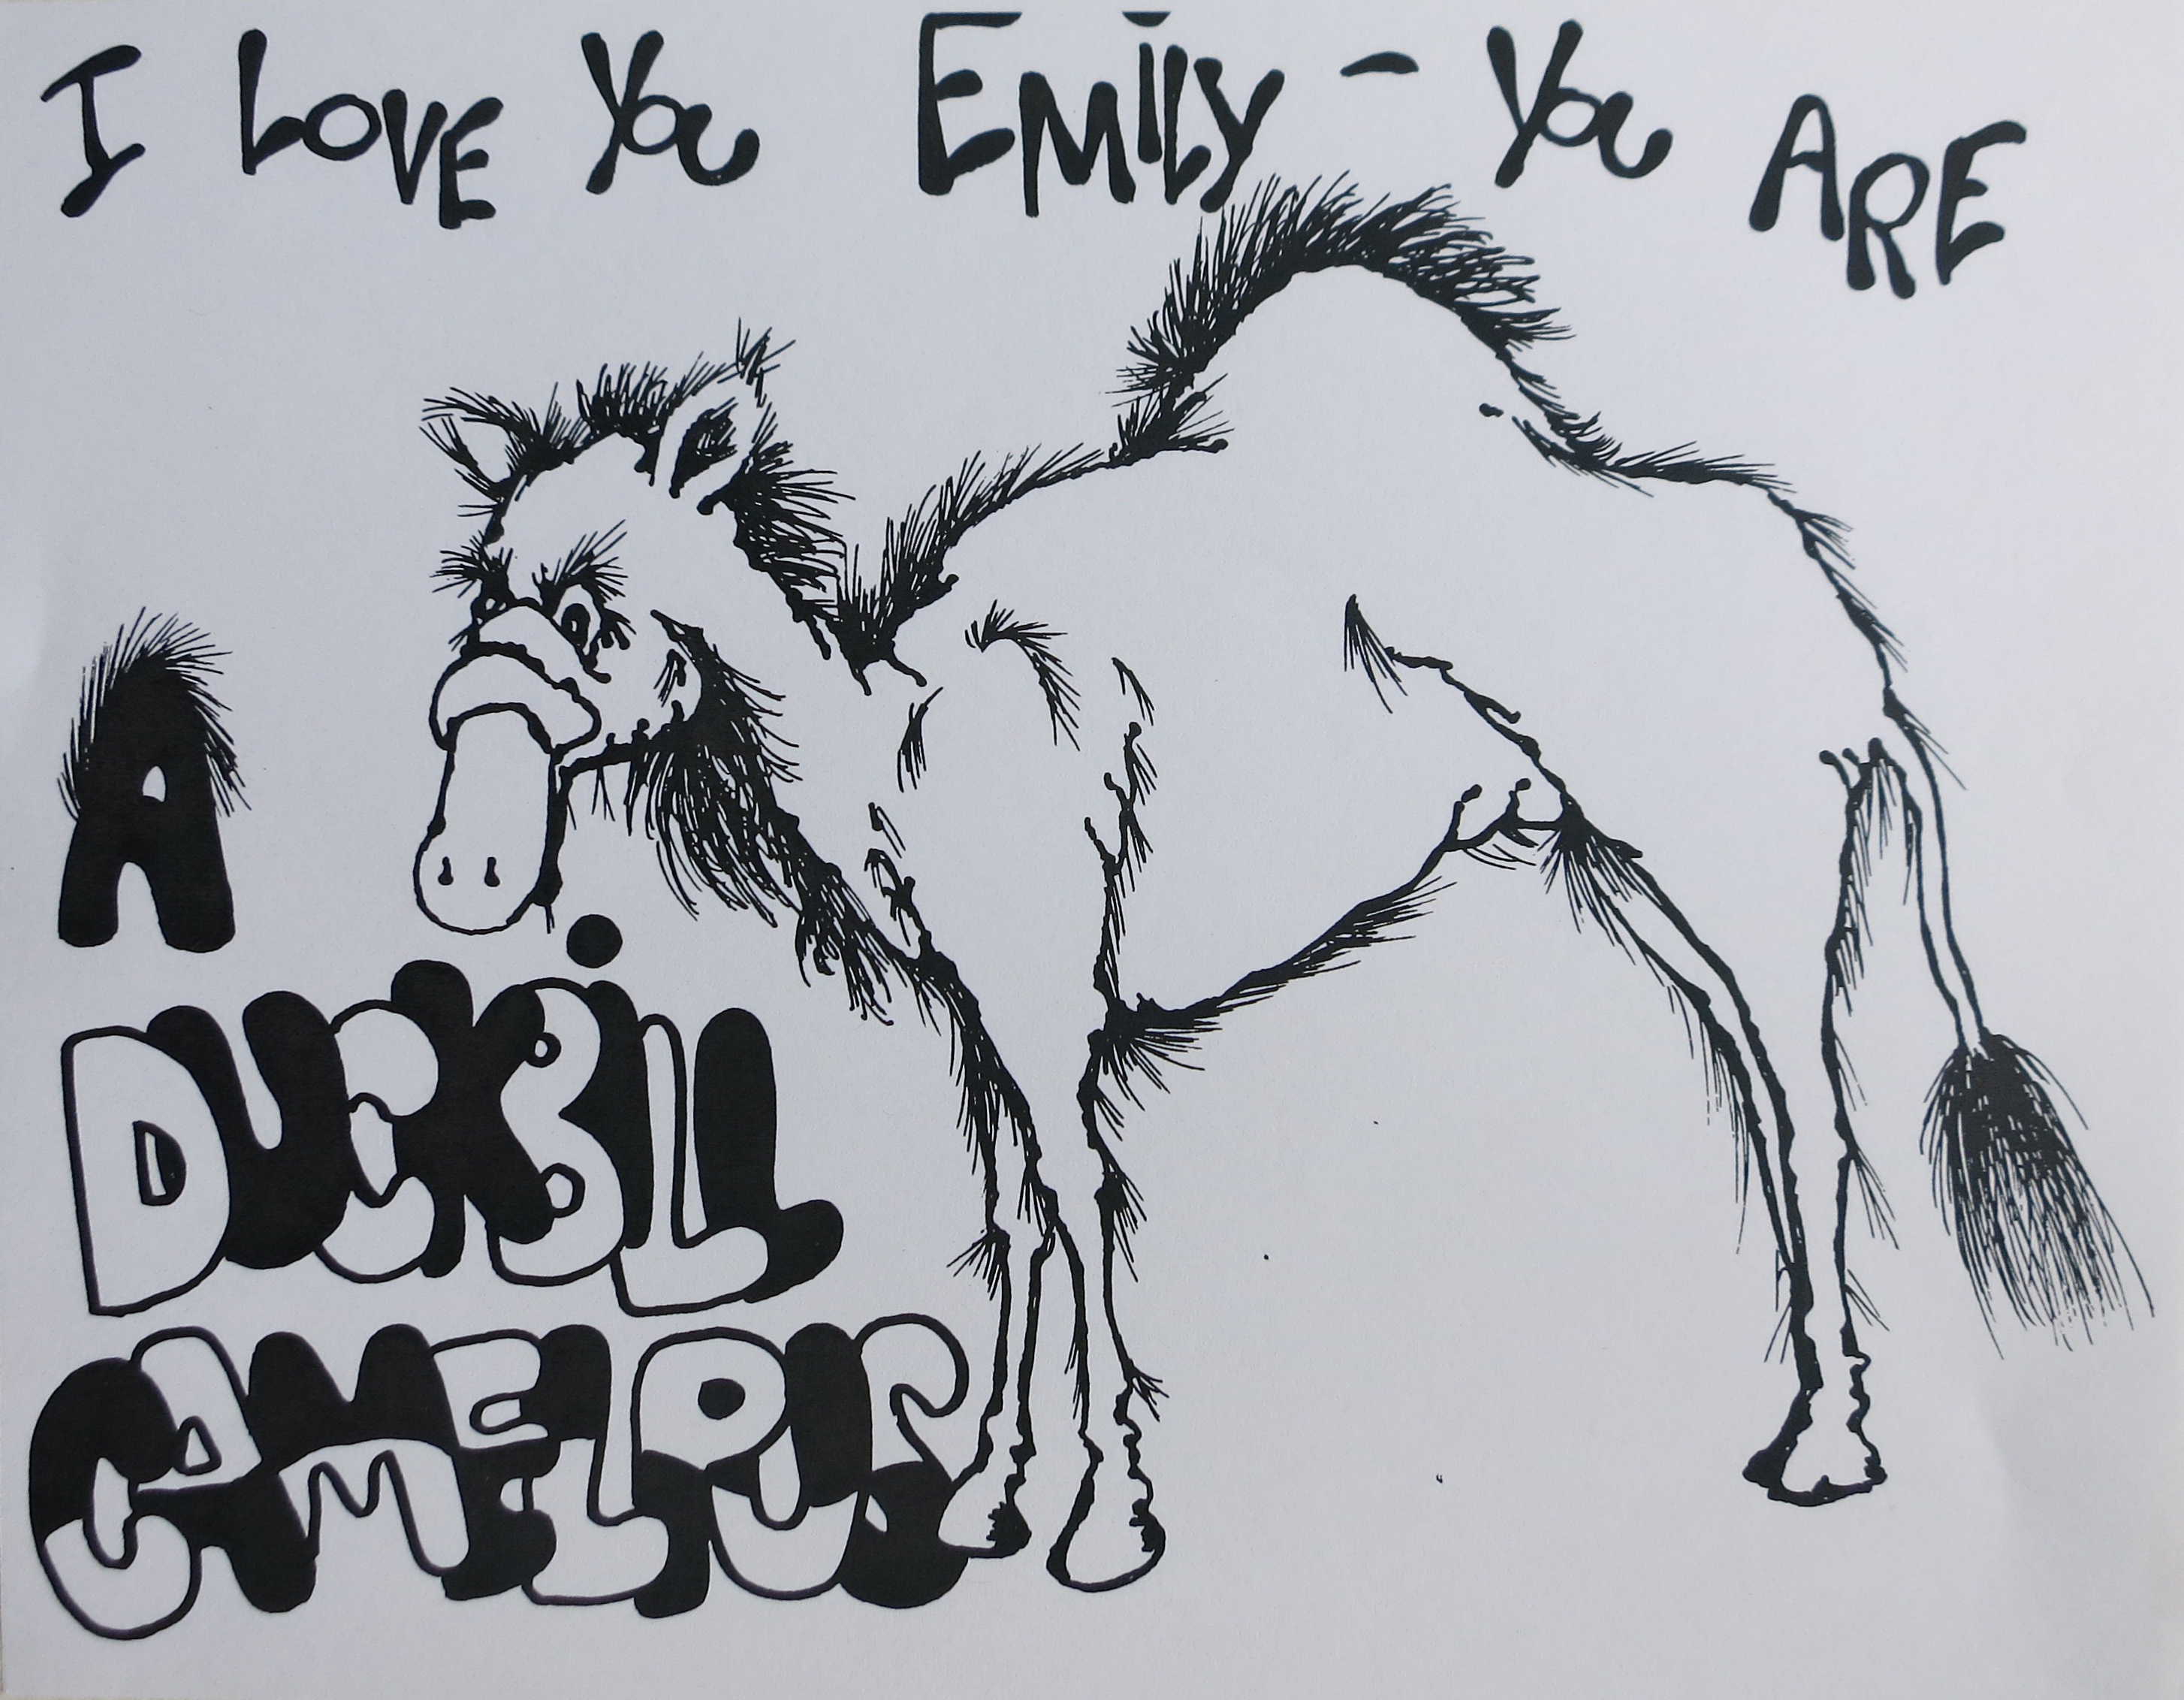 I LOVE YOU EMILY - YOU ARE
A
DUCKBiLL
CAMELPUS